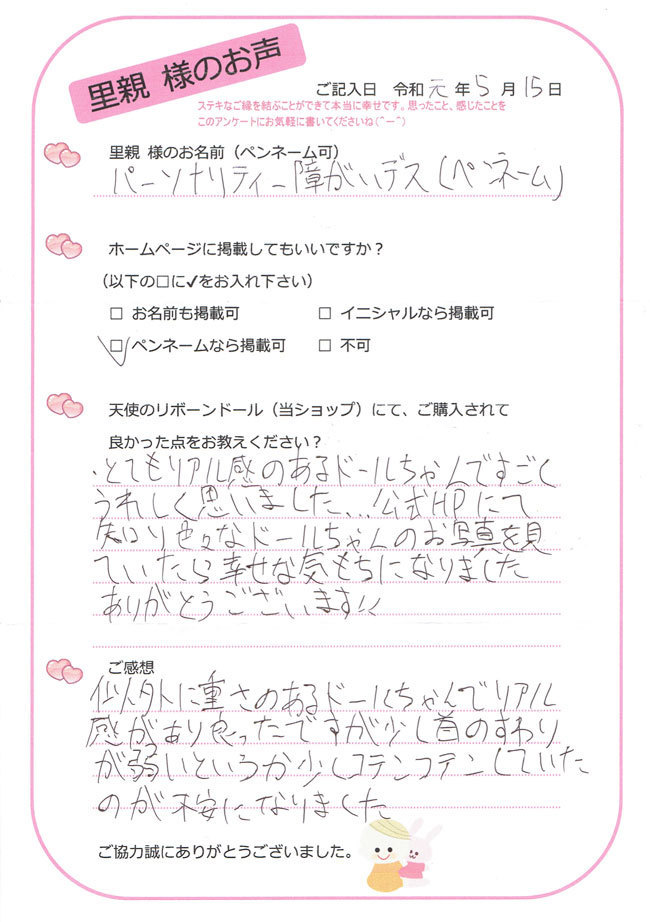 里親 様のお声
ご記入日 令和 元 年 5 月 15 日
ステキなご縁を結ぶことができて本当に幸せです。思ったこと、感じたことを
このアンケートにお気軽に書いてくださいね(^ー^)
里親 様のお名前（ペンネーム可）
パーソナリティー障がいデス(ペンネーム)
ホームページに掲載してもいいですか？
（以下の□に✓をお入れ下さい）
□ お名前も掲載可 □ イニシャルなら掲載可
☑ ペンネームなら掲載可 □ 不可
天使のリボーンドール（当ショップ）にて、ご購入されて
良かった点をお教えください？
・とてもリアル感のあるドールちゃんですごく
うれしく思いました...公式HPにて
知り色々なドールちゃんのお写真を見
ていたら幸せな気もちになりました
ありがとうございます!!
ご感想
似外に重さのあるドールちゃんでリアル
感があり良ったですが少し首のすわり
が弱いというか少しコテンコテンしていた
のが不安になりました
ご協力誠にありがとうございました。